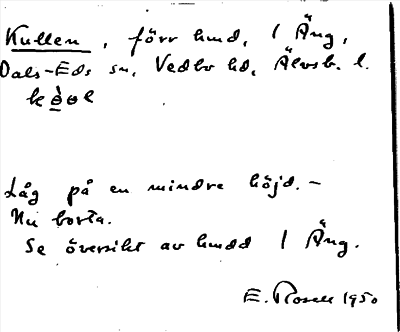 Kullen, förr hmd, 1 Äng,
Dals-Eds sn, Vedbo hd, Älvsb. l.
Låg på en mindre höjd. -
Nu borta.
Se översikt av hmdd 1 Äng.
E. Rosell 1950